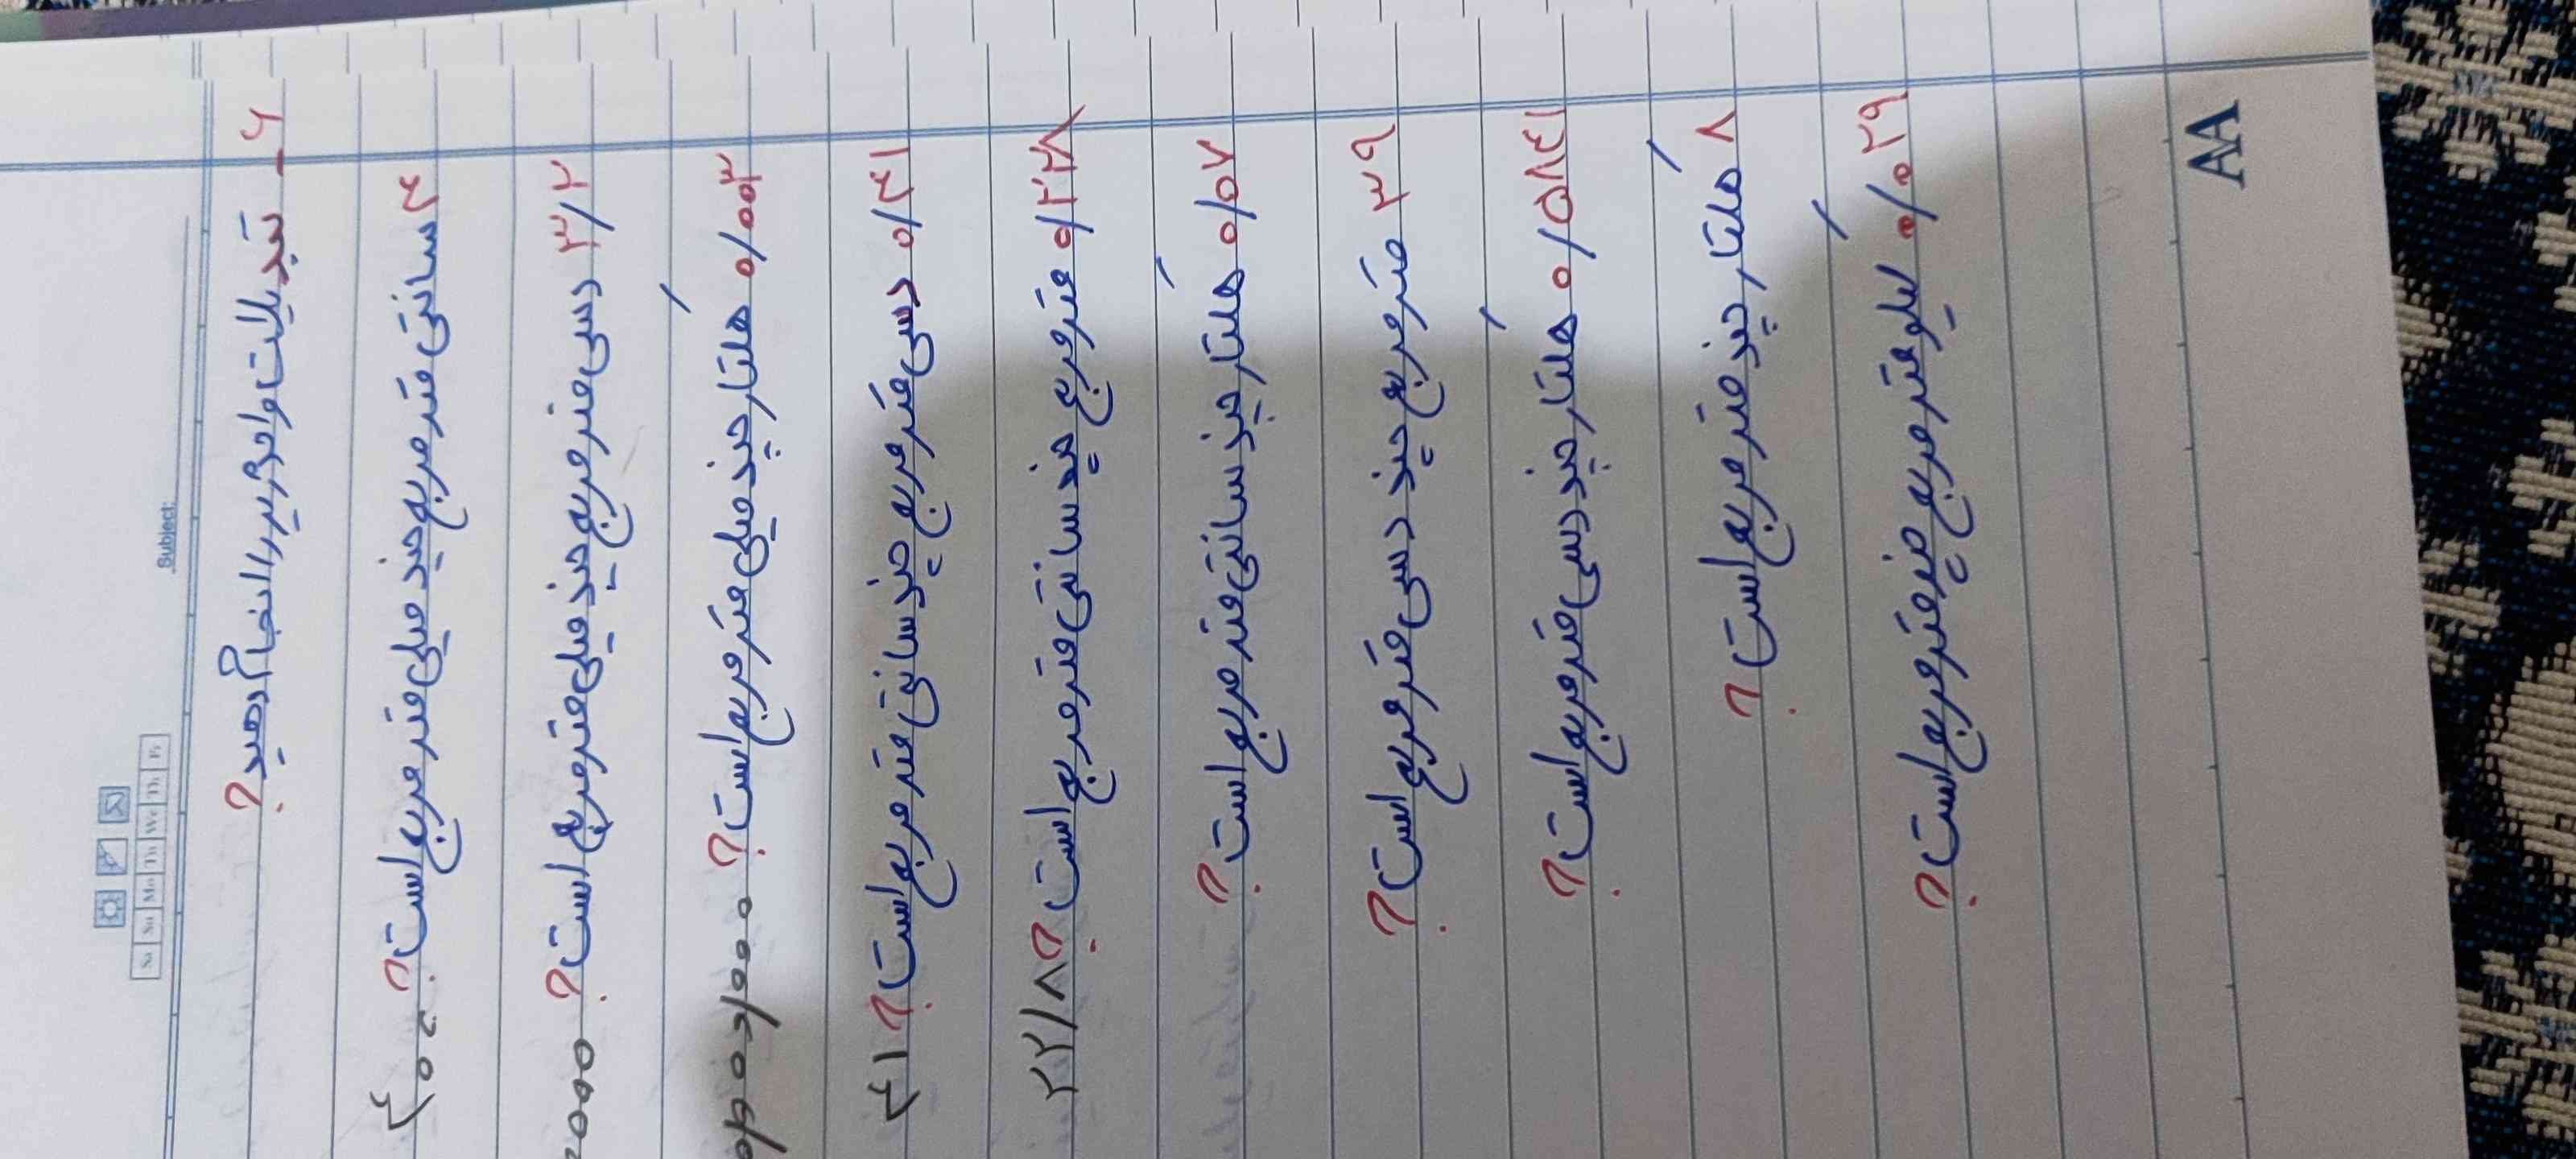 Subject:
Sa Su Mo Tu We Th Fr
۶ - تبدیلات واحد زیر را انجام دهید؟
۴ سانتی متر مربع چند میلی متر مربع است؟ ۴۰۰
۳/۲ دسی متر مربع چند میلی متر مربع است؟
۰/۰۰۳ هکتار چند میلی متر مربع است؟
۰/۴۱ دسی متر مربع چند سانتی متر مربع است؟ ۴۱
۰/۲۲۸ متر مربع چند سانتی متر مربع است؟ ۲۲/۸
۰/۵۷ هکتار چند سانتی متر مربع است؟
۳۹ متر مربع چند دسی متر مربع است؟
۰/۵۸۴۱ هکتار چند دسی متر مربع است؟
۸ هکتار چند متر مربع است؟
۰/۰۲۹ کیلو متر مربع چند متر مربع است؟
AA